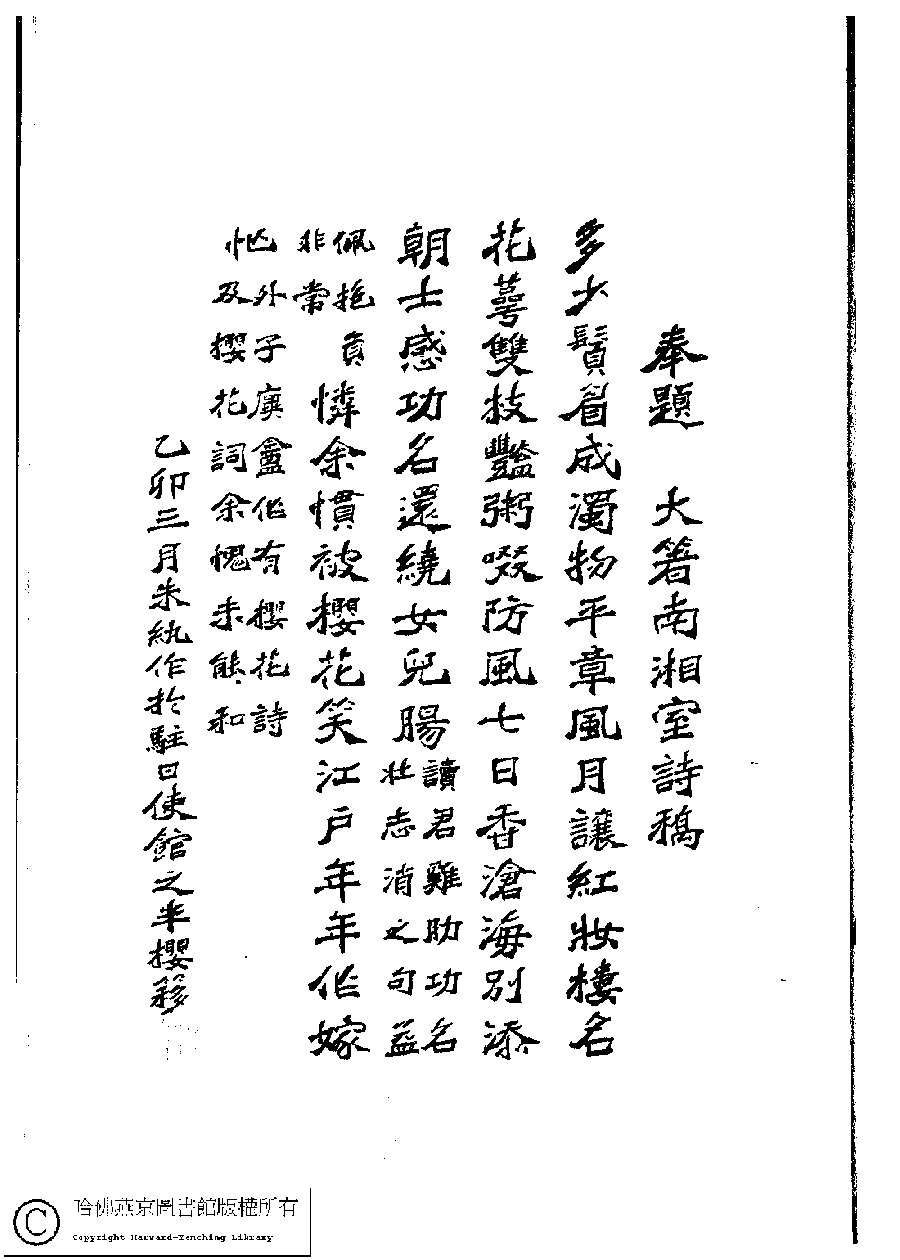 奉題　大箸南湘室詩稿
多少鬚眉成濁物平章風月讓紅妝棲名
花萼雙技豔粥啜防風七日香滄海別添
朝士感功名還繞女兒腸讀君雞肋功名
壯志消之句益
佩抱負
非常憐余慣被櫻花笑江戶年年作嫁
忙外子廣龕作有櫻花詩
及櫻花詞余愧未能和
乙卯三月朱紈作於駐日使館之半櫻簃
哈佛燕京圖書館版權所有
Copyright Harvard-Yenching Library